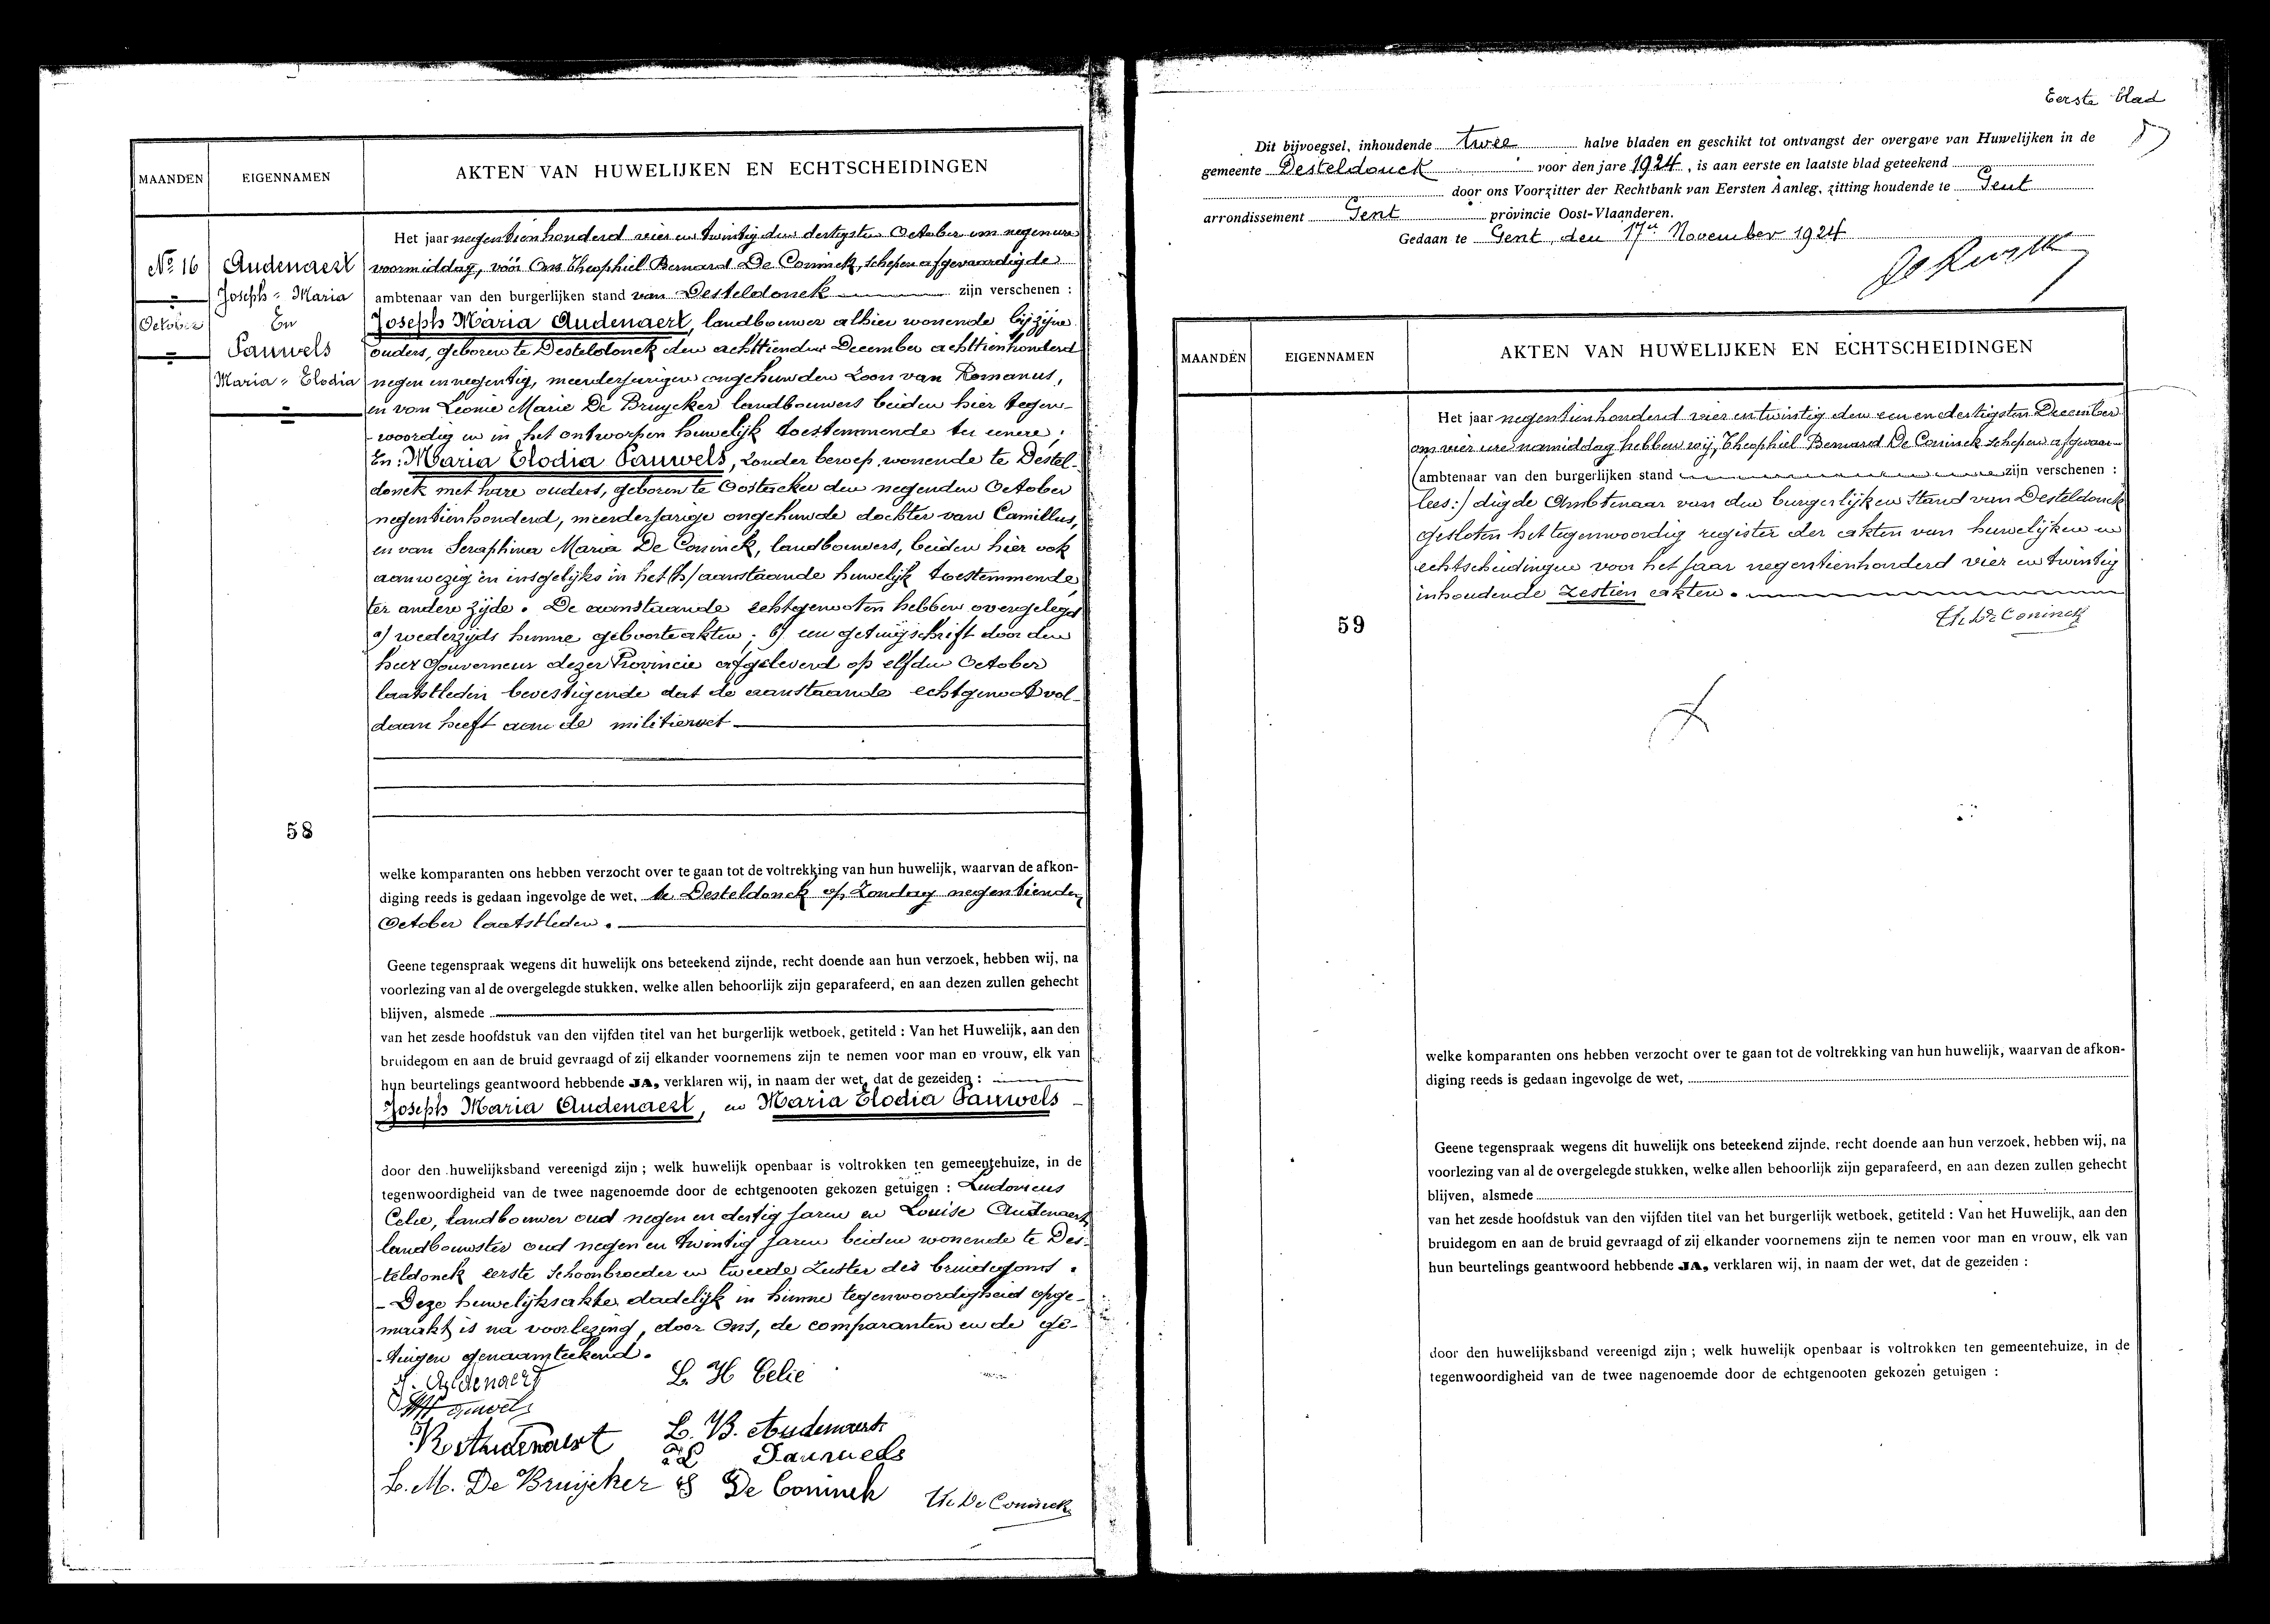 MAANDEN
EIGENNAMEN
AKTEN VAN HUWELIJKEN EN ECHTSCHEIDINGEN
No 16
October
Audenaert
Joseph = Maria
En
Pauwels
Maria = Elodia
58
Het jaar negentienhonderd vier en twintig den dertigsten October om negen ure
voormiddag, vóór Ons Theophiel Bernard De Coninck, schepen afgevaardigde
ambtenaar van den burgerlijken stand van Desteldonck zijn verschenen :
Joseph Maria Audenaert, landbouwer alhier wonende bij zijne
ouders, geboren te Desteldonck den achttienden December achttienhonderd
negen en negentig, meerderjarigen ongehuwden Zoon van Romanus,
en van Leonie Marie De Bruycker landbouwers beiden hier tegen-
-woordig en in het ontworpen huwelijk toestemmende ter eenere ;
En : Maria Elodia Pauwels, zonder beroep, wonende te Destel-
donck met hare ouders, geboren te Oostacker den negenden October
negentienhonderd, meerderjarige ongehuwde dochter van Camillus,
en van Seraphina Maria De Coninck, landbouwers, beiden hier ook
aanwezig en insgelijks in het (h) aanstaande huwelijk toestemmende
ter andere zijde. De aanstaande echtgenooten hebben overgelegd
a) wederzijds hunne geboorteakten ; b) een getuigschrift door den
heer Gouverneur dezer Provincie afgeleverd op elfden October
laatstleden bevestigende dat de aanstaande echtgenoot vol-
daan heeft aan de militiewet
welke komparanten ons hebben verzocht over te gaan tot de voltrekking van hun huwelijk, waarvan de afkon-
diging reeds is gedaan ingevolge de wet, te Desteldonck op Zondag negentienden
October laatstleden.
Geene tegenspraak wegens dit huwelijk ons beteekend zijnde, recht doende aan hun verzoek, hebben wij, na
voorlezing van al de overgelegde stukken, welke allen behoorlijk zijn geparafeerd, en aan dezen zullen gehecht
blijven, alsmede
van het zesde hoofdstuk van den vijfden titel van het burgerlijk wetboek, getiteld : Van het Huwelijk, aan den
bruidegom en aan de bruid gevraagd of zij elkander voornemens zijn te nemen voor man en vrouw, elk van
hun beurtelings geantwoord hebbende JA, verklaren wij, in naam der wet, dat de gezeiden :
Joseph Maria Audenaert, en Maria Elodia Pauwels -
door den huwelijksband vereenigd zijn ; welk huwelijk openbaar is voltrokken ten gemeentehuize, in de
tegenwoordigheid van de twee nagenoemde door de echtgenooten gekozen getuigen : Ludovicus
Celie, landbouwer oud negen en dertig jaren en Louise Audenaert
landbouwster oud negen en twintig jaren beiden wonende te Des-
-teldonck eerste Schoonbroeder en tweede Zuster des bruidegoms.
- Deze huwelijksakte dadelijk in hunne tegenwoordigheid opge-
maakt, is na voorlezing, door Ons, de comparanten en de ge-
-tuigen genaamteekend.
J. Audenaert
L. H Celie
Pauwels
R. Audenaert
L. B. Audenaert
Pauwels
L. M. De Bruijcker
S De Coninck
Th. De Coninck
Eerste blad
Dit bijvoegsel, inhoudende twee halve bladen en geschikt tot ontvangst der overgave van Huwelijken in de
gemeente Desteldonck voor den jare 1924, is aan eerste en laatste blad geteekend
door ons Voorzitter der Rechtbank van Eersten Aanleg, zitting houdende te Gent
arrondissement Gent provincie Oost-Vlaanderen.
Gedaan te Gent, den 17en November 1924
MAANDEN
EIGENNAMEN
AKTEN VAN HUWELIJKEN EN ECHTSCHEIDINGEN
59
Het jaar negentienhonderd vier en twintig den een en dertigsten December
om vier ure namiddag hebben wij, Theophiel Bernard De Coninck schepen afgevaar-
(ambtenaar van den burgerlijken stand zijn verschenen :
lees :) digde Ambtenaar van den burgerlijken Stand van Desteldonck
gesloten het tegenwoordig register der akten van huwelijken en
echtscheidingen voor het jaar negentienhonderd vier en twintig
inhoudende zestien akten.
Th. De Coninck
welke komparanten ons hebben verzocht over te gaan tot de voltrekking van hun huwelijk, waarvan de afkon-
diging reeds is gedaan ingevolge de wet,
Geene tegenspraak wegens dit huwelijk ons beteekend zijnde, recht doende aan hun verzoek, hebben wij, na
voorlezing van al de overgelegde stukken, welke allen behoorlijk zijn geparafeerd, en aan dezen zullen gehecht
blijven, alsmede
van het zesde hoofdstuk van den vijfden titel van het burgerlijk wetboek, getiteld : Van het Huwelijk, aan den
bruidegom en aan de bruid gevraagd of zij elkander voornemens zijn te nemen voor man en vrouw, elk van
hun beurtelings geantwoord hebbende JA, verklaren wij, in naam der wet, dat de gezeiden :
door den huwelijksband vereenigd zijn ; welk huwelijk openbaar is voltrokken ten gemeentehuize, in de
tegenwoordigheid van de twee nagenoemde door de echtgenooten gekozen getuigen :